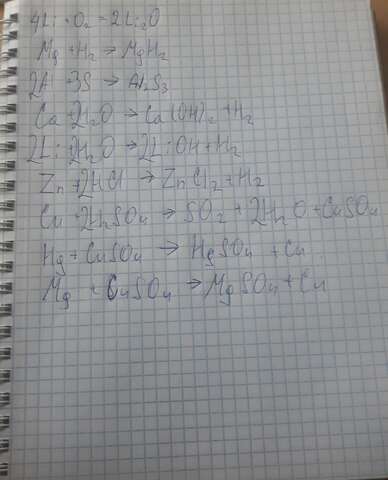 4Li + O₂ = 2Li₂O
Mg + H₂ → MgH₂
2Al + 3S → Al₂S₃
Ca + 2H₂O → Ca(OH)₂ + H₂
2Li + 2H₂O → 2LiOH + H₂
Zn + 2HCl → ZnCl₂ + H₂
Cu + 2H₂SO₄ → SO₂ + 2H₂O + CuSO₄
Hg + CuSO₄ → HgSO₄ + Cu
Mg + CuSO₄ → MgSO₄ + Cu